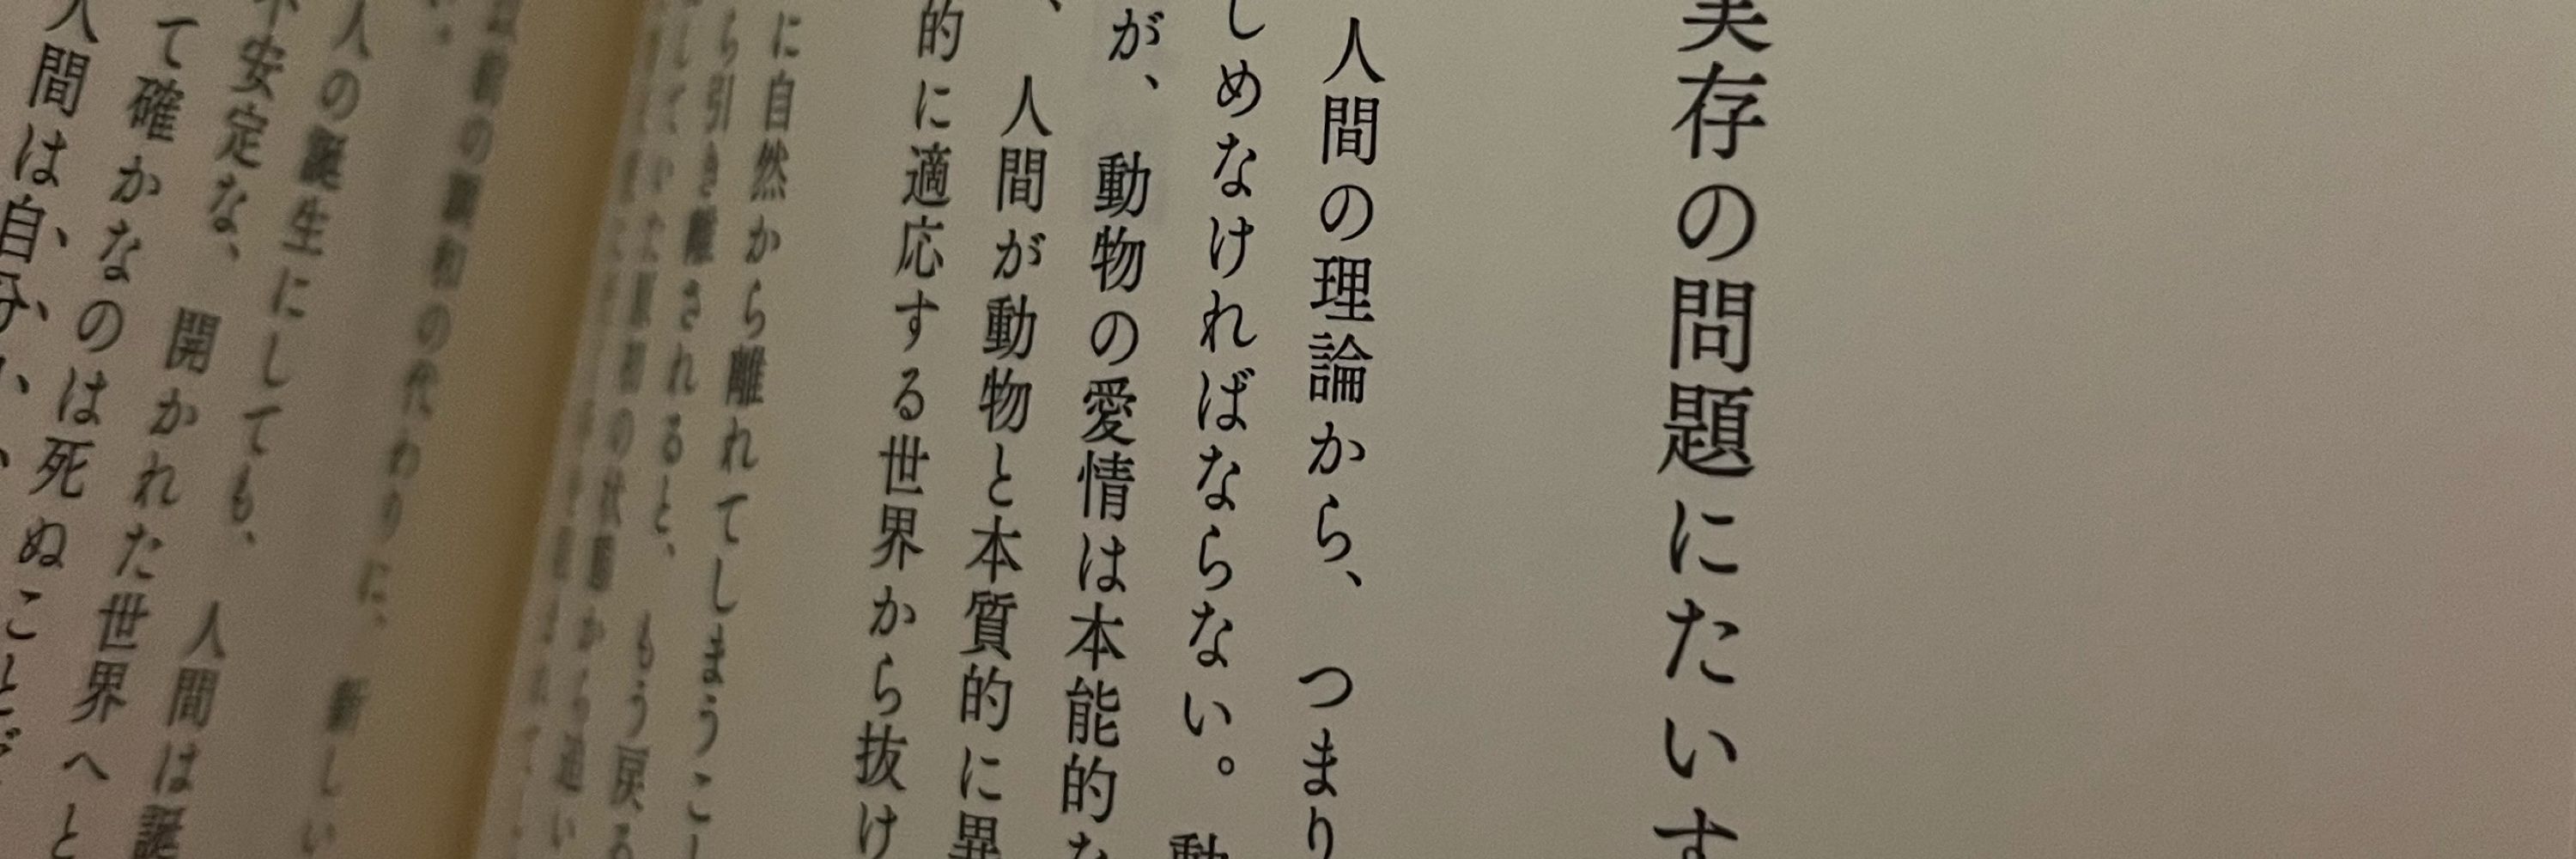 実存の問題にたいす
人間の理論から、つまり
しめなければならない。動
が、動物の愛情は本能的な
、人間が動物と本質的に異
的に適応する世界から抜け
に自然から離れてしまうこ
ら引き離されると、もう戻る
の状態から追い
調和の代わりに、新しい
人の誕生にしても、
不安定な、開かれた世界へと
て確かなのは死ぬこと
人間は自分